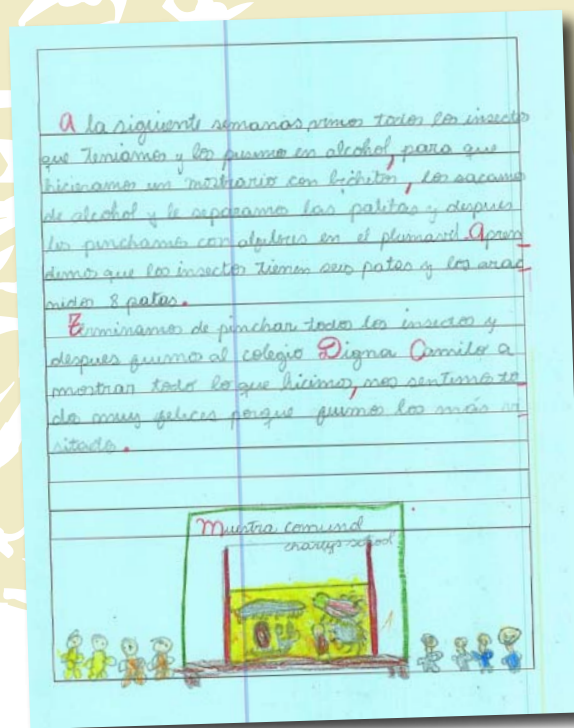 A la siguiente semanas vimos todos los insecto
que teniamos y los pusimo en alcohol, para que
hicieramos un mostrario con bichitos, los sacamo
de alcohol y le separamos las patitas y despues
los pinchamos con alfileres en el plumavil. Apren
demos que los insecto tienen seis patas y los arac
nidos 8 patas.
Terminamos de pinchar todos los insectos y
despues fuimos al colegio Digna Camilo a
mostrar todo lo que hicimos, nos sentimos to
do muy felices porque fuimos los más vi
sitado.
Muestra comunal
school